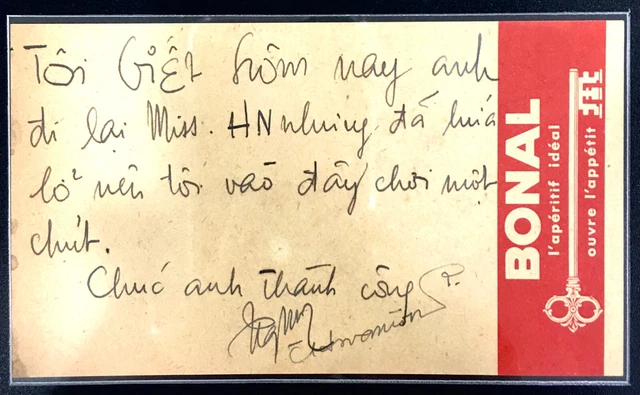 Tôi Giết hôm nay anh
đi lại Miss. HN nhưng đã hứa
lỡ nên tôi vào đây chơi một
chút.
Chúc anh thành công
BONAL
l'apéritif idéal
ouvre l'appétit